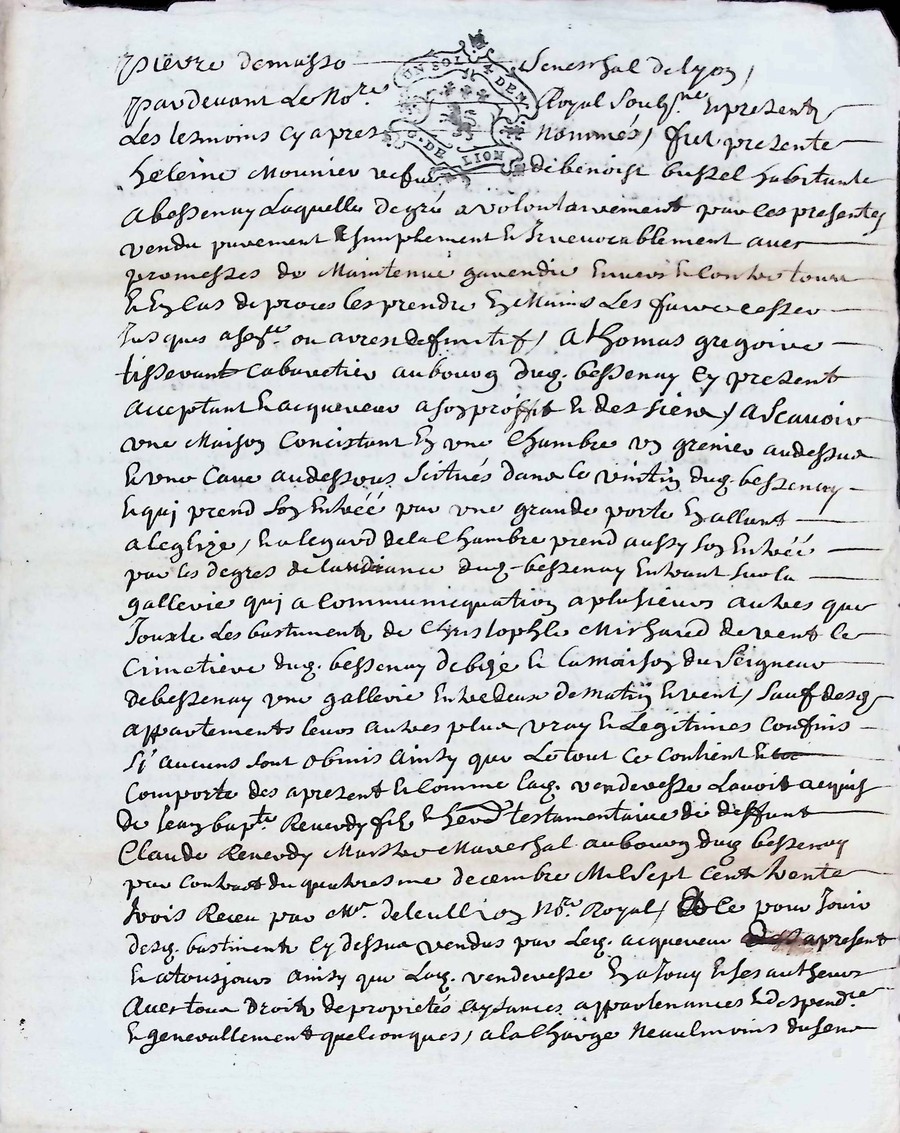 pierre demasso senechal de lyon /
pardevant Le No.re Royal Soubs.ne En presente
Les tesmoins cy apres Nommés / fut presente
heleine Mounier vefue de benoist bussel habitante
a bessenay Laquelle de gré a volontairement par ces presentes
vendu purement & simplement & Irrevocablement avec
promesses de Maintenir garendir Envers & Contre tous
& En Cas de proces Les prendre En Mains Les faire cesser
Jusques a Sen.ce ou arrest definitif / a thomas gregoire
tisserant cabaretier au bourg dud. bessenay Cy present
acceptant & acquereur a son proffit & des siens / a scavoir
une Maison Concistant En une Chambre un grenier au dessus
& une Cave au dessous Situés dans le vintin dud. bessenay
& qui prend Son Entréé par une grande porte En allant
a leglize / & a legard de la Chambre prend aussy Son Entréé
par les degres de dud. bessenay Entrant sur la
gallerie qui a Communiquation a plusieurs autres que
Jouxte Les bastiments de Christophle Michard de vent le
Cimetiere dud. bessenay de bize & la maison du Seigneur
de bessenay une gallerie Entredeux de matin & vent / Sauf desd.
appartements leurs autres plus vray & Legitimes confins
Si aucuns sont obmis ainsy que Le tout ce Contient &
Comporte des a present & Comme lad. venderesse Lavoit acquis
de Jean bap.te Reverdy fils & herd. testamentaire de deffunt
Claude Reverdy Maitre Mareschal au bourg dud. bessenay
par Contrat du quatriesme decembre Mil Sept Cent trente
trois Receu par M.r Royal / & Ce pour Jouir
desd. bastiments Cy dessus vendus par Led. acquereur a present
& a tousjours ainsy que Lad. venderesse En a Jouy & Ses autheurs
avec tous Droits de proprietés aysances appartenances & despendces
& generallement quelconques / a la Charge Neaulmoins du serv
UN SOL 4 DEN.
G. DE LION